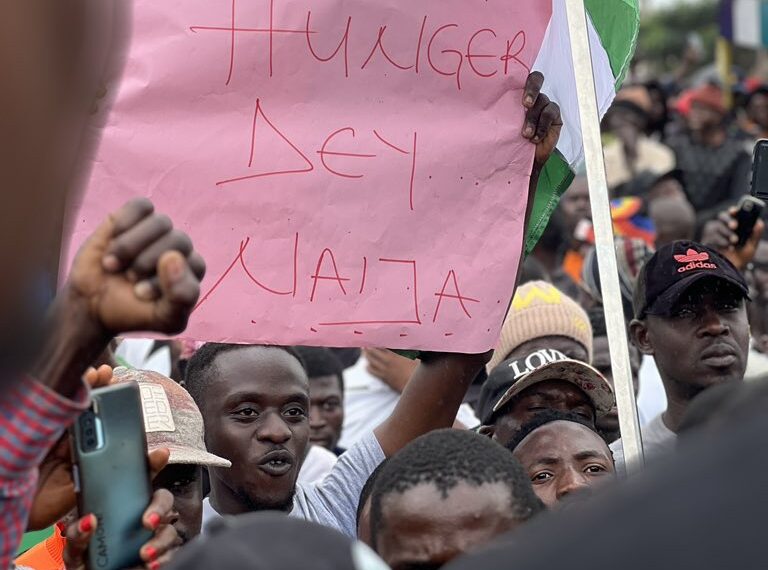 HUNGER
DEY...
NAIJA
LOVE
adidas
CAMON